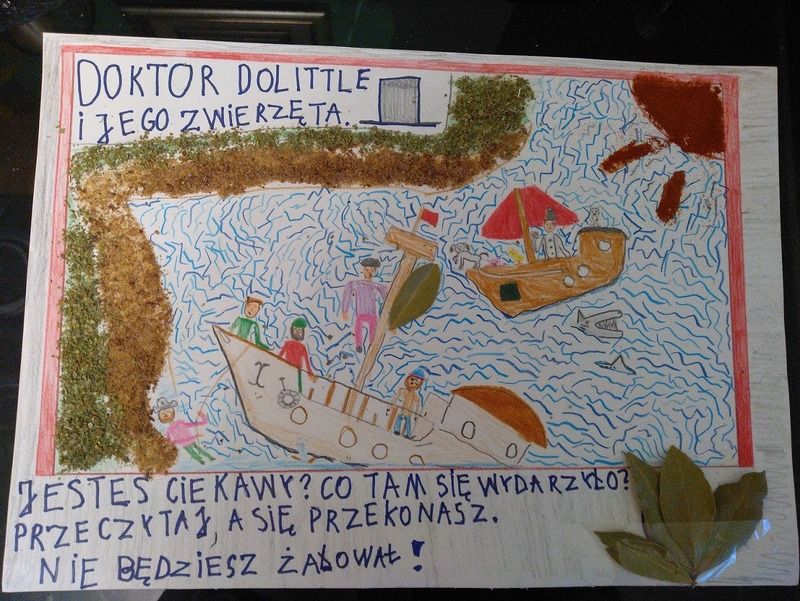 DOKTOR DOLITTLE
i JEGO ZWIERZĘTA.
JESTEŚ CIEKAWY? CO TAM SIĘ WYDARZYŁO?
PRZECZYTAJ, A SIĘ PRZEKONASZ.
NIE BĘDZIESZ ŻAŁOWAŁ!